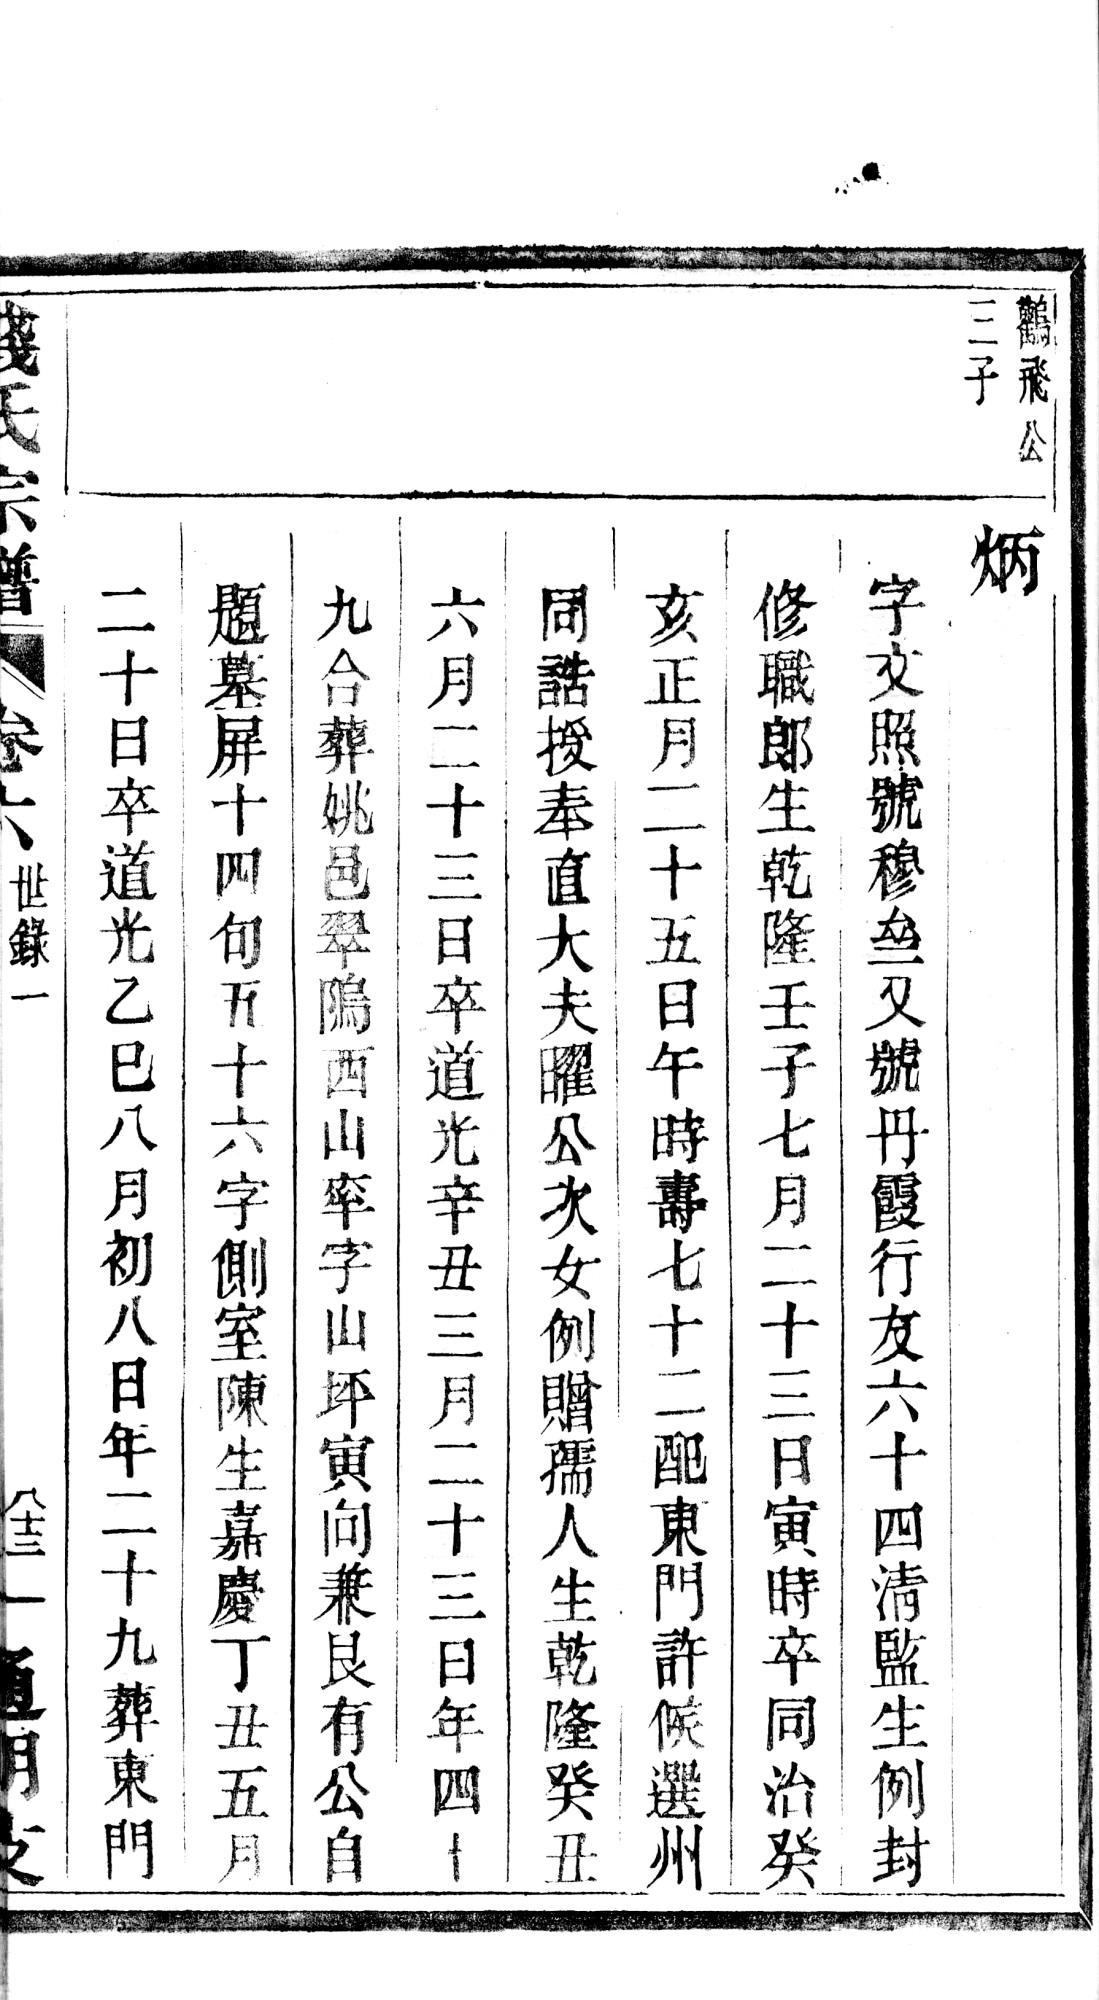 鸛飛公
三子
炳
字文照號穆叁又號丹霞行友六十四清監生例封
修職郎生乾隆壬子七月二十三日寅時卒同治癸
亥正月二十五日午時壽七十二配東門許候選州
同誥授奉直大夫曜公次女例贈孺人生乾隆癸丑
六月二十三日卒道光辛丑三月二十三日年四十
九合葬姚邑翠隖西山牢字山坪寅向兼艮有公自
題墓屏十四句五十六字側室陳生嘉慶丁丑五月
二十日卒道光乙巳八月初八日年二十九葬東門
錢氏宗譜
卷六 世錄一
八十三
通明支